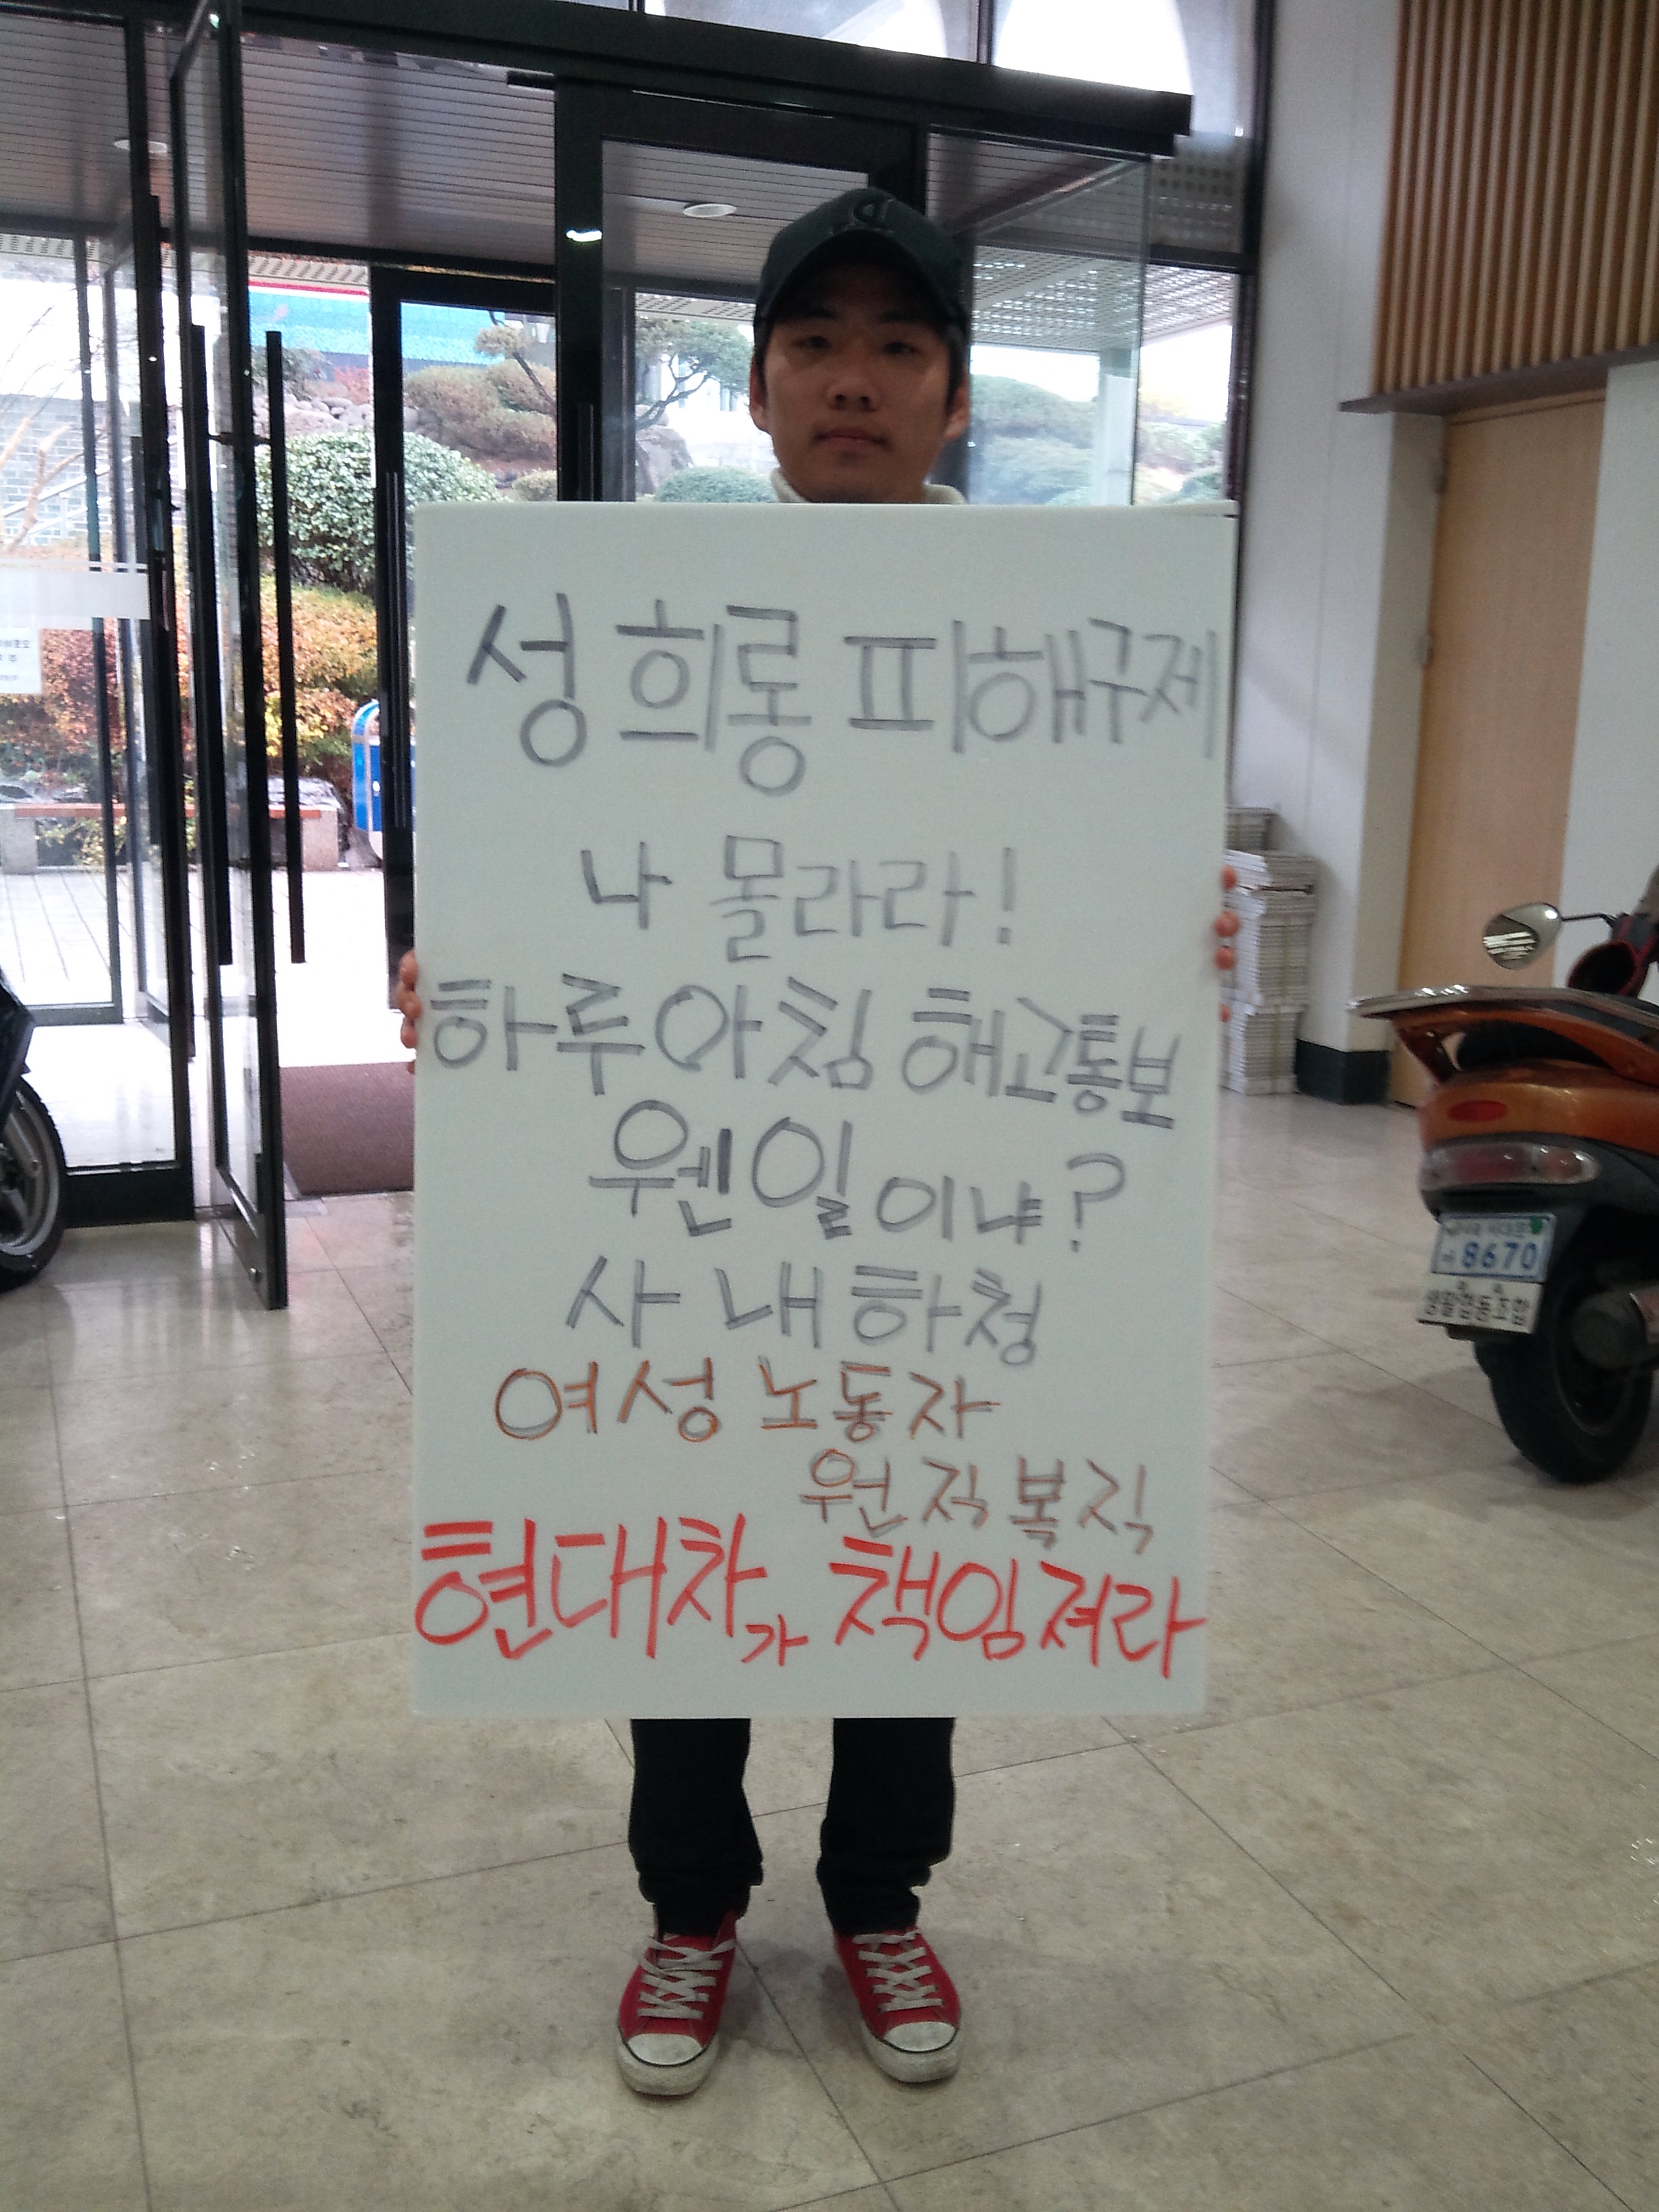 성희롱 피해구제
나 몰라라!
하루아침 해고통보
웬일이냐?
사내하청
여성노동자
원직복직
현대차가 책임져라
8670
생활협동조합